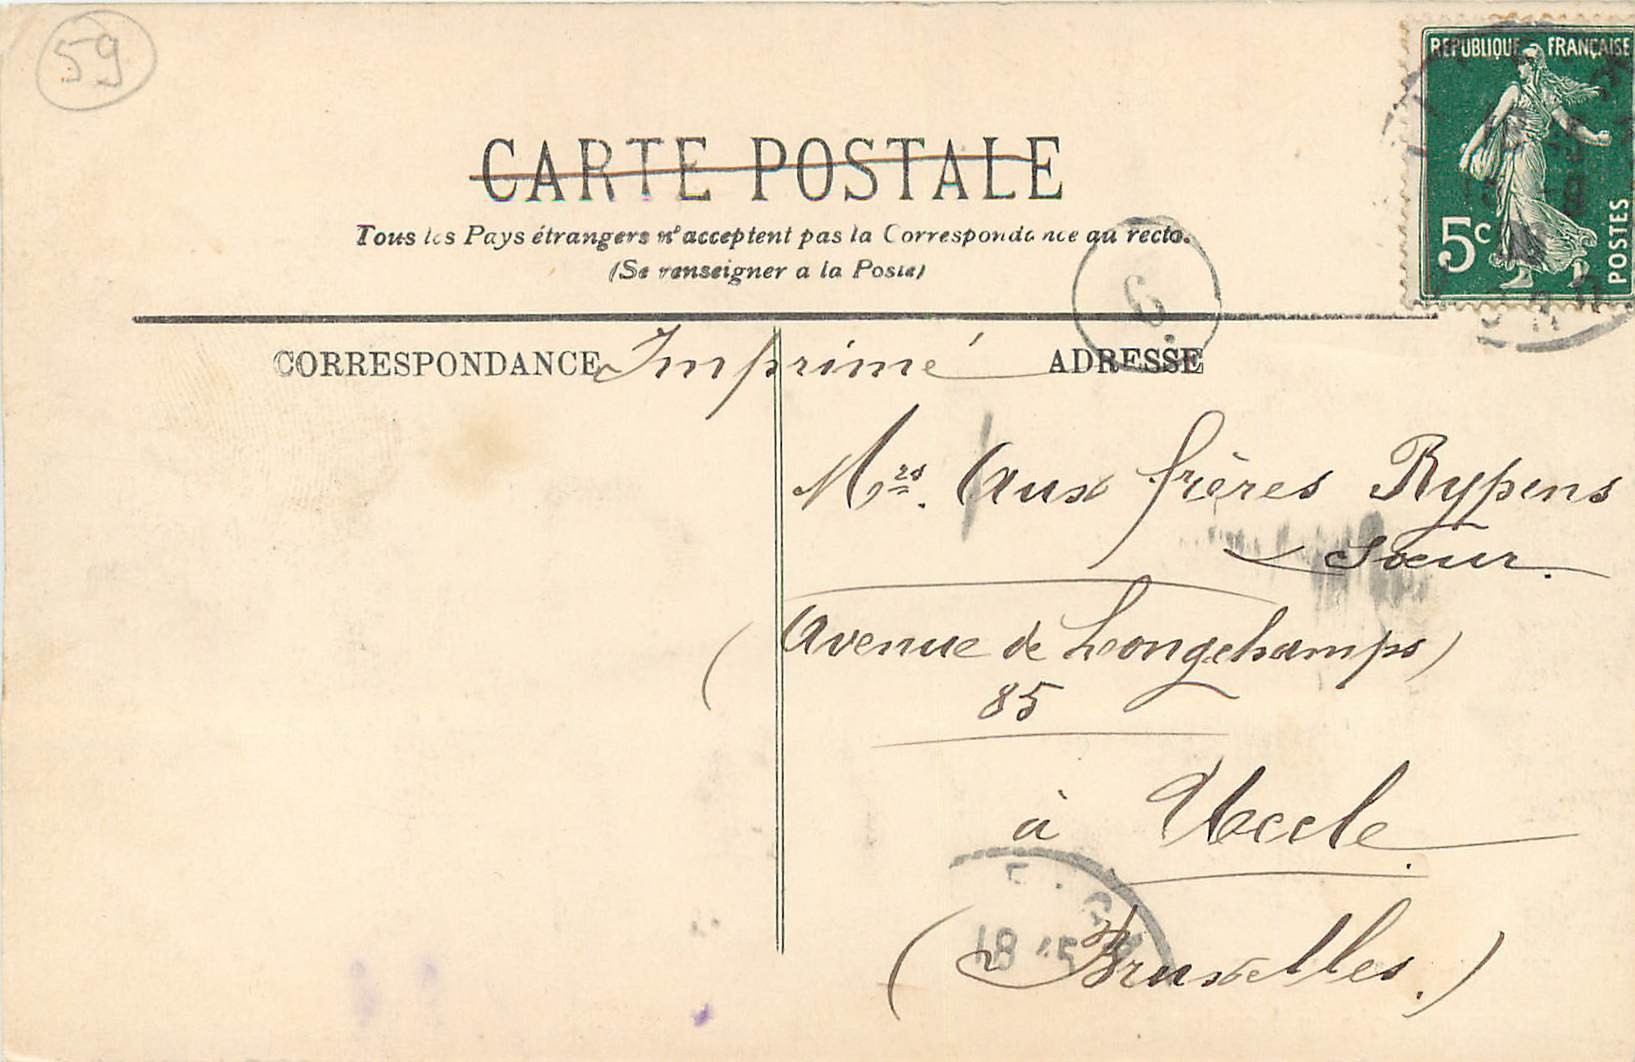 59
RÉPUBLIQUE FRANÇAISE
5c
POSTES
CARTE POSTALE
Tous les Pays étrangers n'acceptent pas la Correspondance au recto.
(Se renseigner a la Poste)
6
CORRESPONDANCE
Imprimé
ADRESSE
Mrs. Aux frères Rypens
Sœur.
(Avenue de Longchamps)
85
à Uccle.
(Bruxelles.)
18